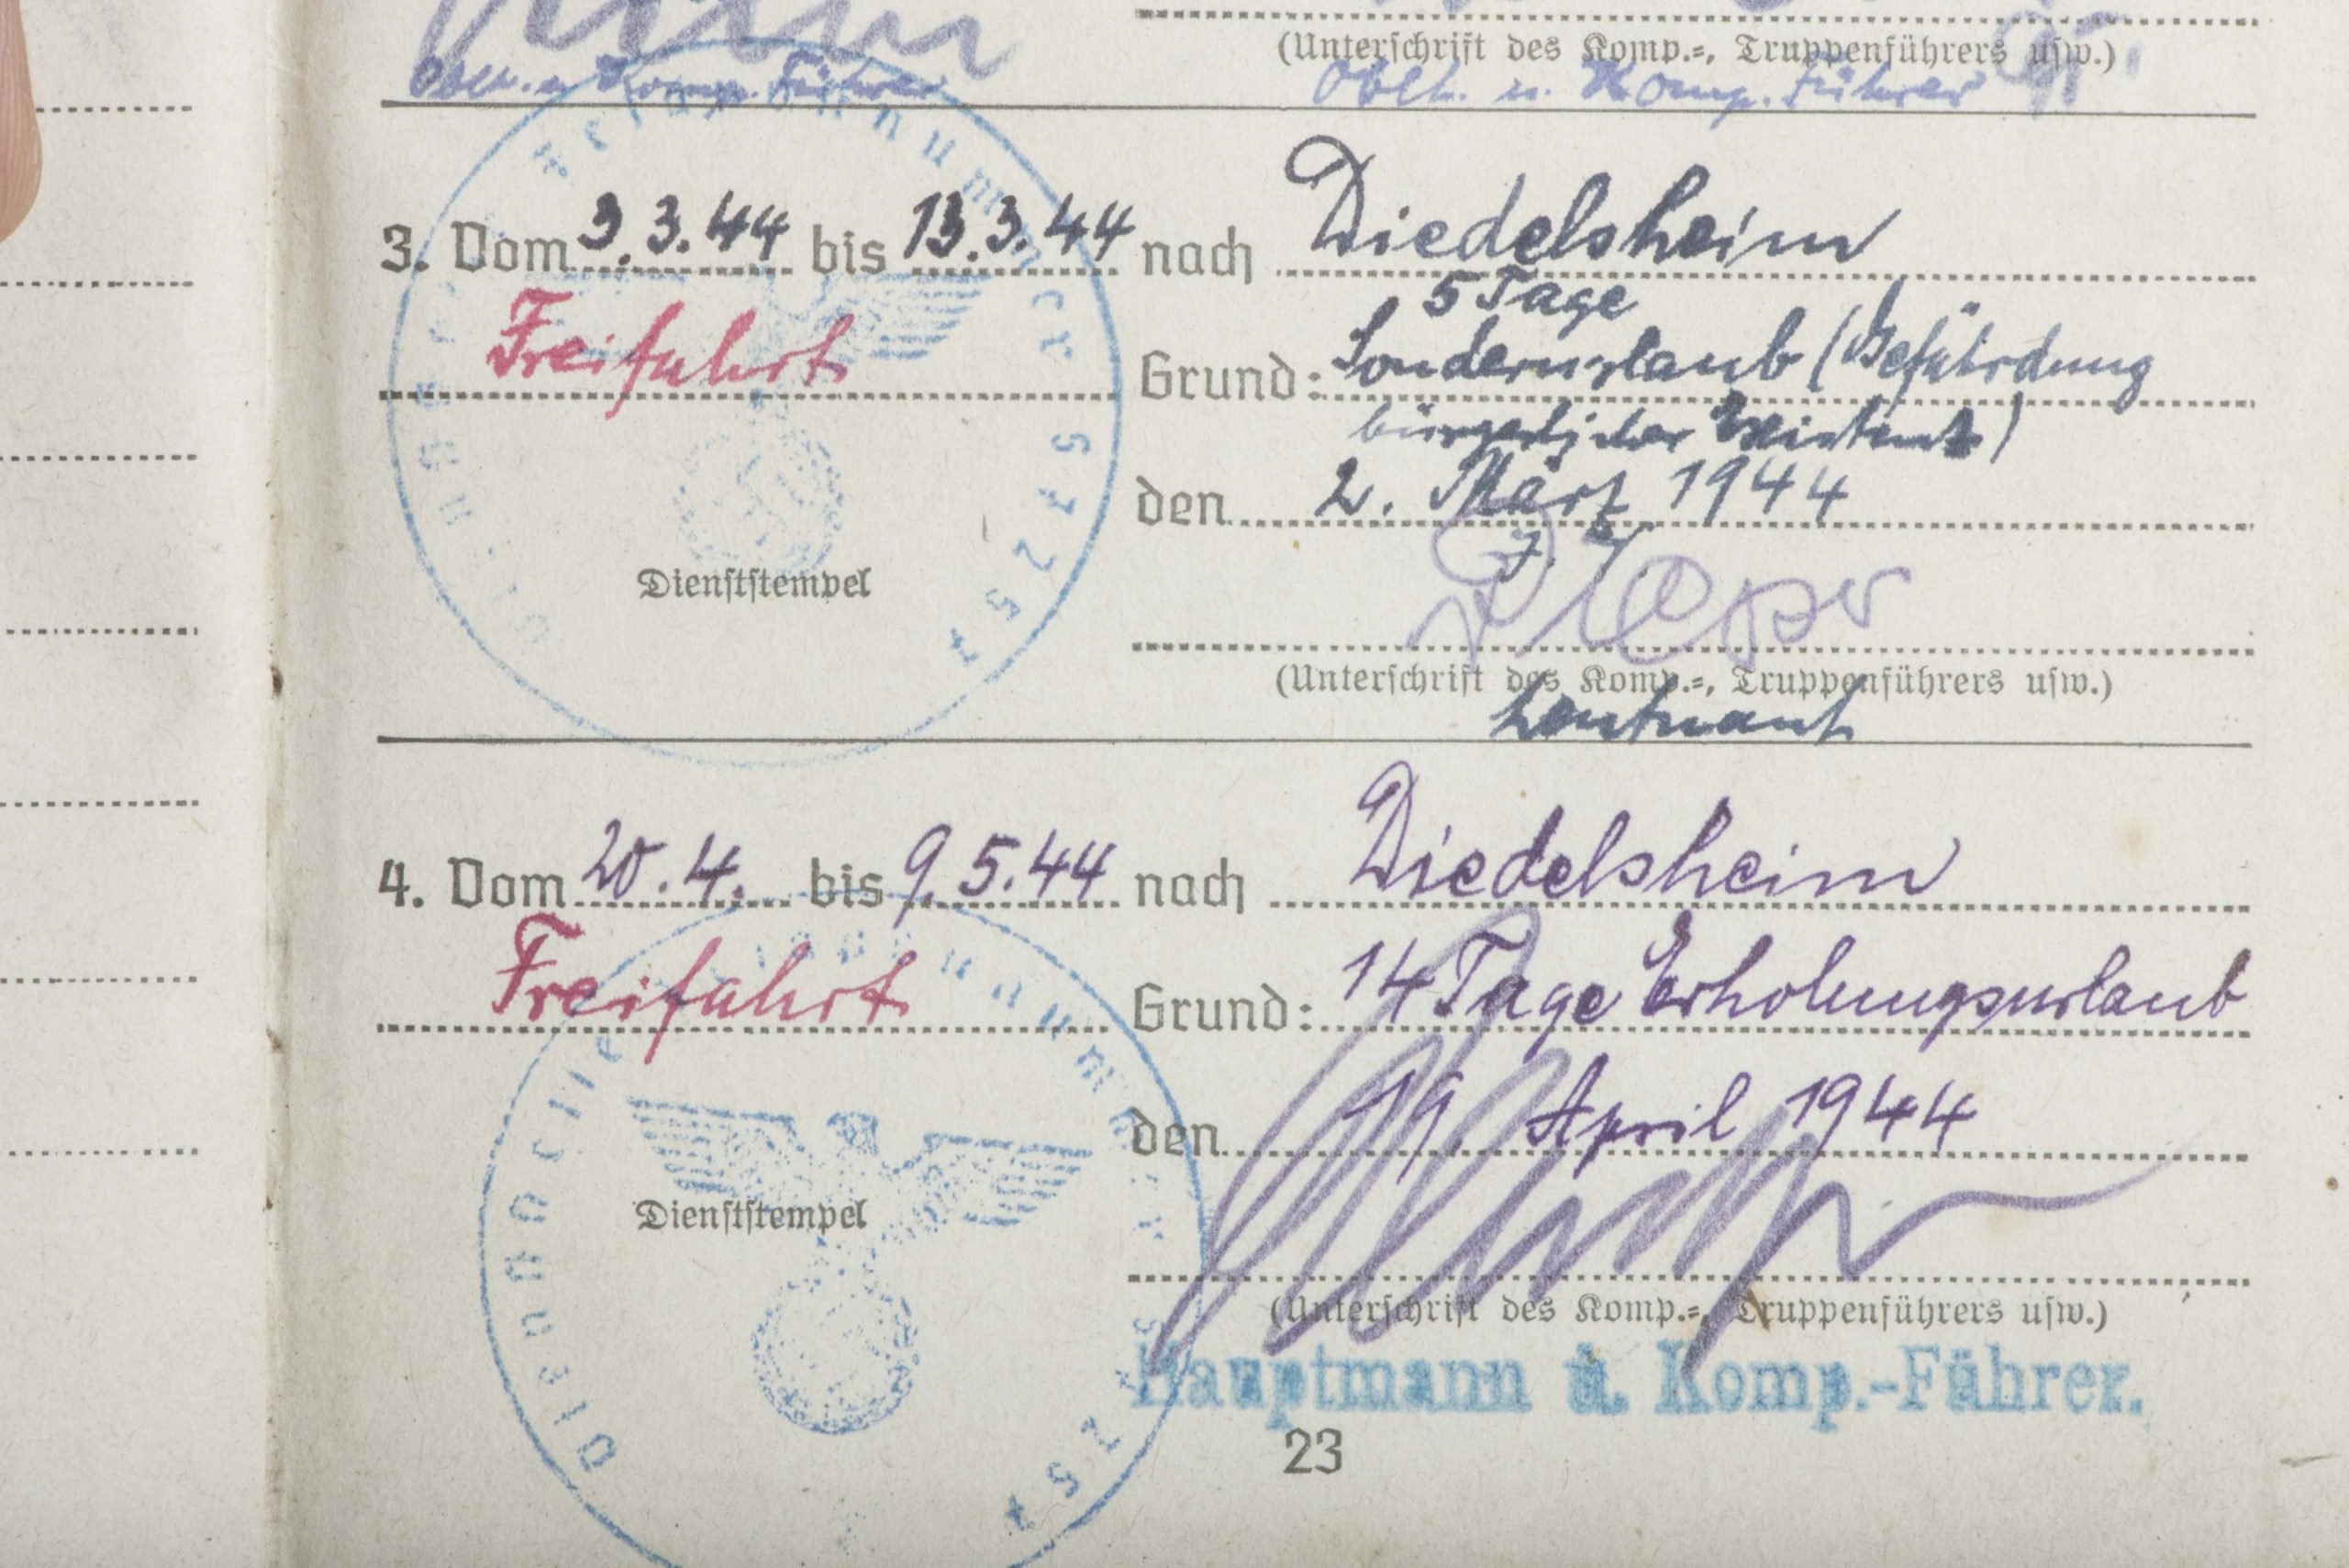 (Unterschrift des Komp.-, Truppenführers usw.)
Oblt. u. Komp. Führer
Oblt. u. Komp. Führer
3. Vom 9.3.44 bis 13.3.44 nach Diedelsheim
5 Tage
Freifahrt
Grund: Sonderurlaub (Gefährdung
bürgerlicher Existenz)
den 2. März 1944
Dienststempel
(Unterschrift des Komp.-, Truppenführers usw.)
Leutnant
4. Vom 20.4. bis 9.5.44 nach Diedelsheim
Freifahrt
Grund: 14 Tage Erholungsurlaub
den 19. April 1944
Dienststempel
(Unterschrift des Komp.-, Truppenführers usw.)
Hauptmann u. Komp.-Führer.
23